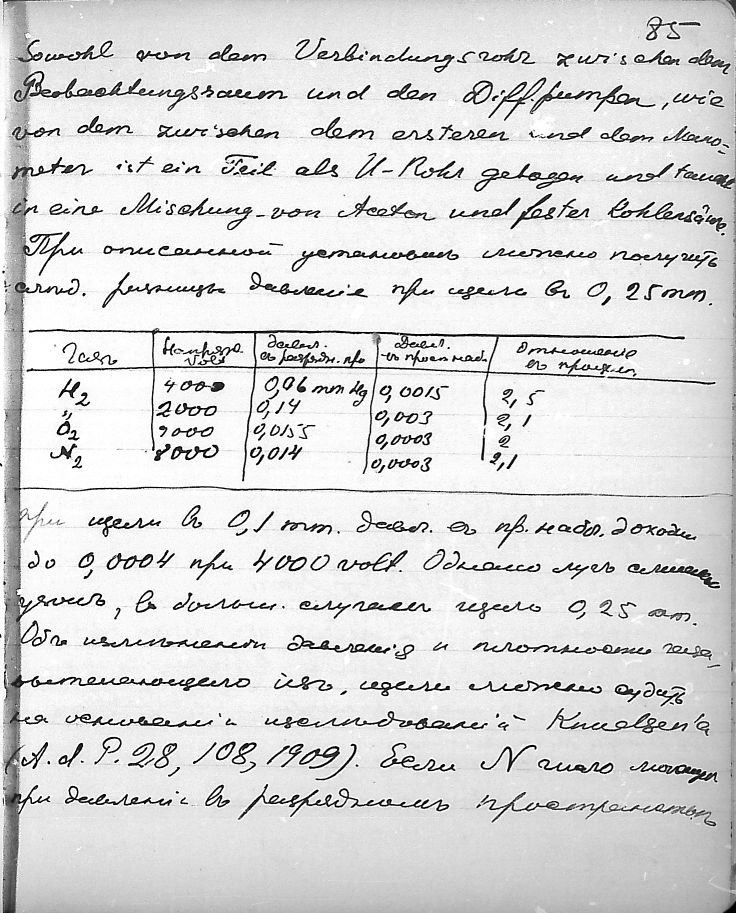 85
Sowohl von dem Verbindungsrohr zwischen dem
Beobachtungsraum und den Diff.pumpen, wie
von dem zwischen dem ersteren und dem Mano-
meter ist ein Teil als U-Rohr gebogen und taucht
in eine Mischung von Aceton und fester Kohlensäure.
При описанной установкѣ можно получить
слѣд. разницы давленія при щели въ 0,25 mm.
Газъ Напряж. Volt Давл. въ разрядн. пр. Давл. въ прост. набл. Отношеніе
H2 4000 0,06 mm Hg 0,0015 2,5
„ 2000 0,14 0,003 2,1
O2 9000 0,0155 0,0003 2
N2 8000 0,014 0,0003 2,1
при щели въ 0,1 mm. давл. въ пр. набл. доходи
до 0,0004 при 4000 volt. Однако лучъ слишкомъ
узокъ, въ больш. случаевъ щель 0,25 mm.
Объ измѣненіи давленія и плотности газа,
вытекающаго изъ щели можно судить
на основаніи изслѣдованій Knudsen'a
(A. d. P. 28, 108, 1909). Если N число молекул
при давленіи въ разрядномъ пространствѣ